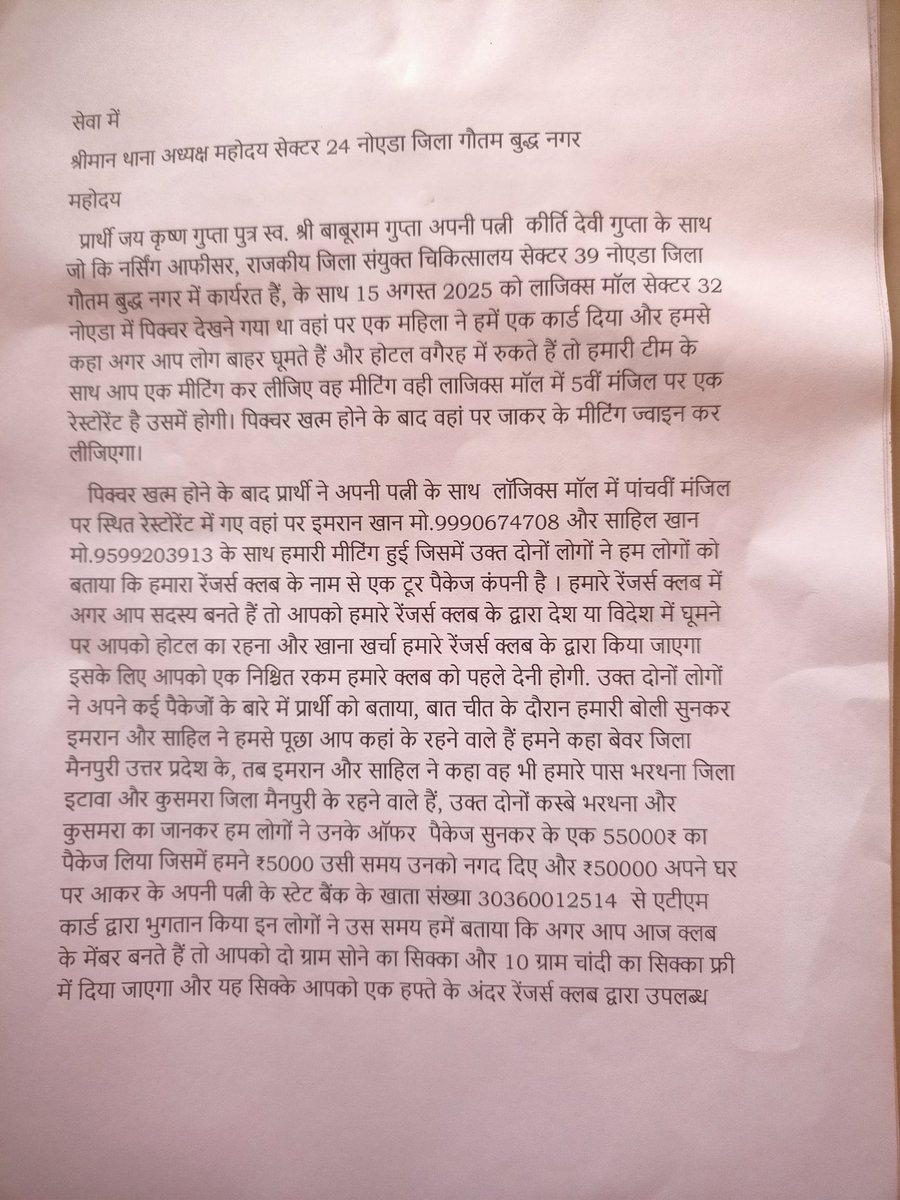 सेवा में
श्रीमान थाना अध्यक्ष महोदय सेक्टर 24 नोएडा जिला गौतम बुद्ध नगर
महोदय
प्रार्थी जय कृष्ण गुप्ता पुत्र स्व. श्री बाबूराम गुप्ता अपनी पत्नी कीर्ति देवी गुप्ता के साथ
जो कि नर्सिंग आफीसर, राजकीय जिला संयुक्त चिकित्सालय सेक्टर 39 नोएडा जिला
गौतम बुद्ध नगर में कार्यरत हैं, के साथ 15 अगस्त 2025 को लाजिक्स मॉल सेक्टर 32
नोएडा में पिक्चर देखने गया था वहां पर एक महिला ने हमें एक कार्ड दिया और हमसे
कहा अगर आप लोग बाहर घूमते हैं और होटल वगैरह में रुकते हैं तो हमारी टीम के
साथ आप एक मीटिंग कर लीजिए वह मीटिंग वही लाजिक्स मॉल में 5वीं मंजिल पर एक
रेस्टोरेंट है उसमें होगी। पिक्चर खत्म होने के बाद वहां पर जाकर के मीटिंग ज्वाइन कर
लीजिएगा।
पिक्चर खत्म होने के बाद प्रार्थी ने अपनी पत्नी के साथ लॉजिक्स मॉल में पांचवीं मंजिल
पर स्थित रेस्टोरेंट में गए वहां पर इमरान खान मो.9990674708 और साहिल खान
मो.9599203913 के साथ हमारी मीटिंग हुई जिसमें उक्त दोनों लोगों ने हम लोगों को
बताया कि हमारा रेंजर्स क्लब के नाम से एक टूर पैकेज कंपनी है । हमारे रेंजर्स क्लब में
अगर आप सदस्य बनते हैं तो आपको हमारे रेंजर्स क्लब के द्वारा देश या विदेश में घूमने
पर आपको होटल का रहना और खाना खर्चा हमारे रेंजर्स क्लब के द्वारा किया जाएगा
इसके लिए आपको एक निश्चित रकम हमारे क्लब को पहले देनी होगी. उक्त दोनों लोगों
ने अपने कई पैकेजों के बारे में प्रार्थी को बताया, बात चीत के दौरान हमारी बोली सुनकर
इमरान और साहिल ने हमसे पूछा आप कहां के रहने वाले हैं हमने कहा बेवर जिला
मैनपुरी उत्तर प्रदेश के, तब इमरान और साहिल ने कहा वह भी हमारे पास भरथना जिला
इटावा और कुसमरा जिला मैनपुरी के रहने वाले हैं, उक्त दोनों कस्बे भरथना और
कुसमरा का जानकर हम लोगों ने उनके ऑफर पैकेज सुनकर के एक 55000₹ का
पैकेज लिया जिसमें हमने ₹5000 उसी समय उनको नगद दिए और ₹50000 अपने घर
पर आकर के अपनी पत्नी के स्टेट बैंक के खाता संख्या 30360012514 से एटीएम
कार्ड द्वारा भुगतान किया इन लोगों ने उस समय हमें बताया कि अगर आप आज क्लब
के मेंबर बनते हैं तो आपको दो ग्राम सोने का सिक्का और 10 ग्राम चांदी का सिक्का फ्री
में दिया जाएगा और यह सिक्के आपको एक हफ्ते के अंदर रेंजर्स क्लब द्वारा उपलब्ध